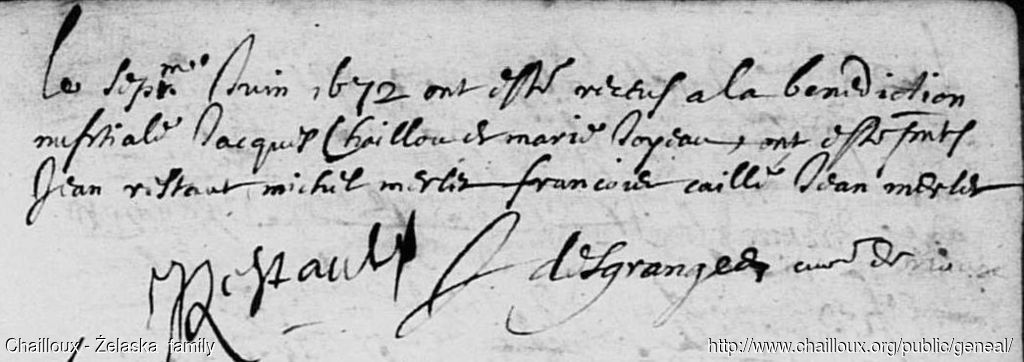 le sepme Juin 1672 ont esté receus a la benediction
nuptialle Jacques Chaillou et marie Joyeau, ont esté pnts
Jean restaut michel merlet francois caillé Jean merlet
Restault desgranges curé de
Chailloux - Żelaska family http://www.chailloux.org/public/geneal/